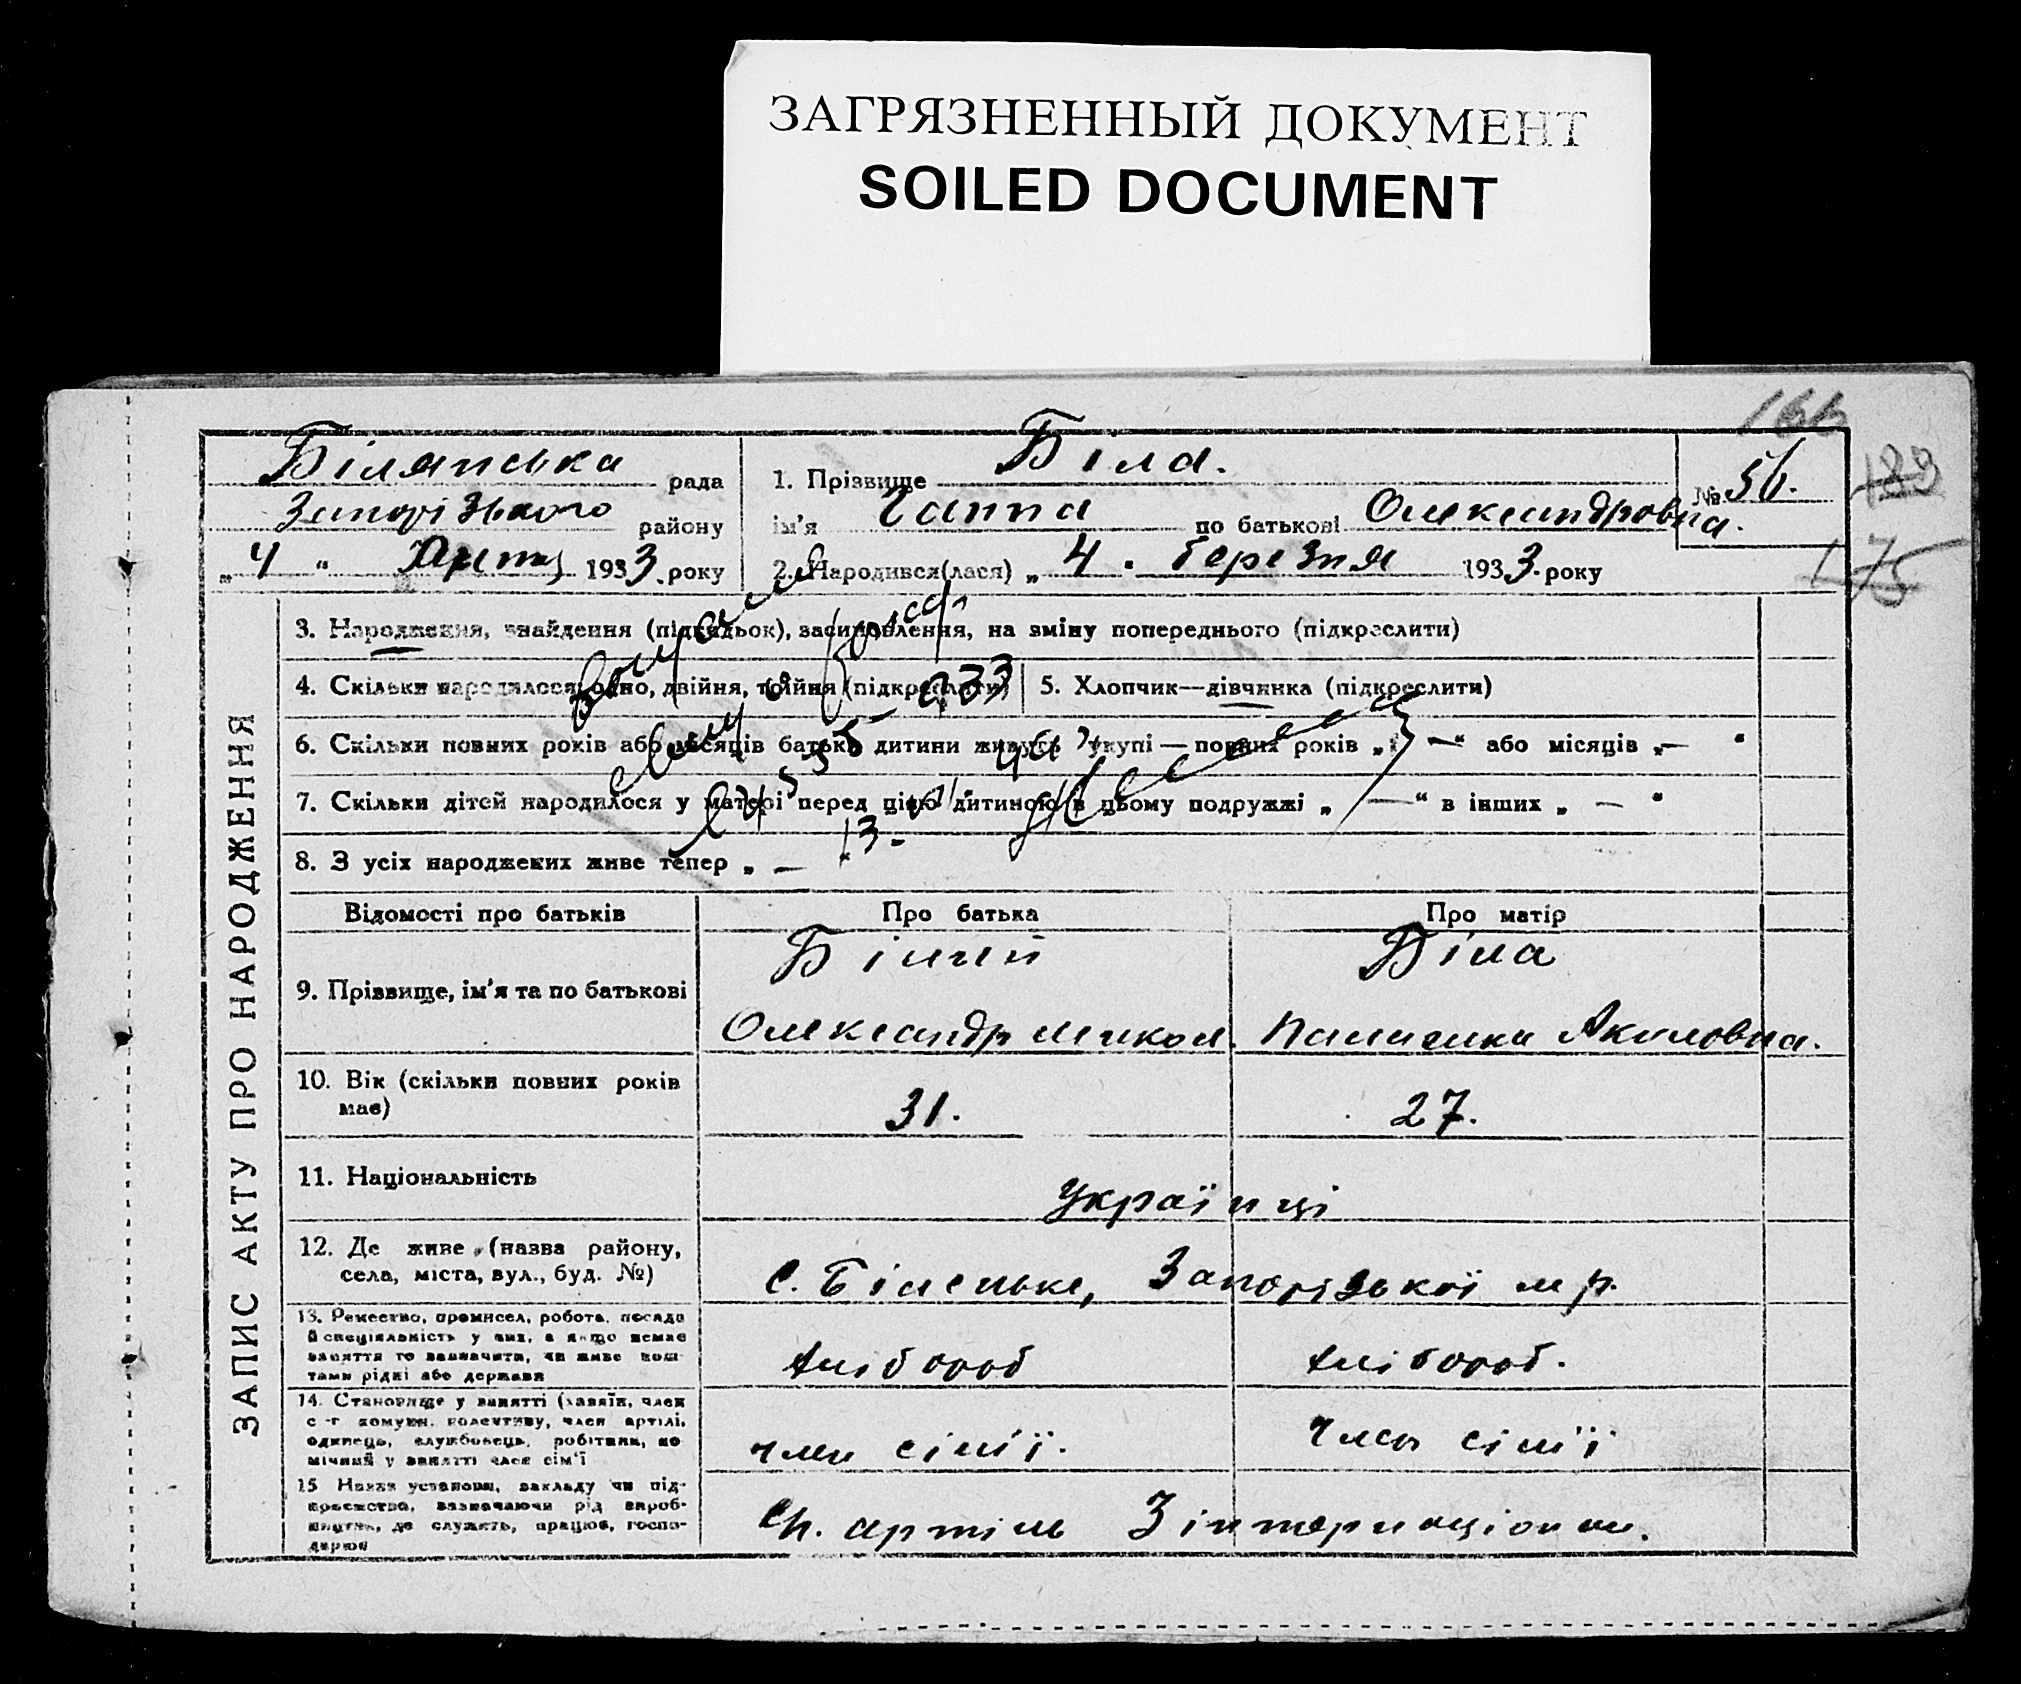 ЗАГРЯЗНЕННЫЙ ДОКУМЕНТ
SOILED DOCUMENT
166
189
175
Білянська рада
Запорізького району
„4“ 1933. року
1. Прізвище Біла.
ім'я Ганна по батькові Олександровна.
№ 56.
2. Народився(лася) „4. березня 1933. року
ЗАПИС АКТУ ПРО НАРОДЖЕННЯ
3. Народження, знайдення (підкидьок), засиновлення, на зміну попереднього (підкреслити)
4. Скільки народилося: одно, двійня, трійня (підкреслити)
5. Хлопчик—дівчинка (підкреслити)
6. Скільки повних років або місяців батьки дитини живуть укупі — повних років „ — “ або місяців „ — “
7. Скільки дітей народилося у матері перед цією дитиною в цьому подружжі „ — “ в інших „ — “
8. З усіх народжених живе тепер „ —
13.
Відомості про батьків
Про батька
Про матір
9. Прізвище, ім'я та по батькові
Білий
Олександр Микол.
Біла
Акиловна.
10. Вік (скільки повних років має)
31.
27.
11. Національність
Українці
12. Де живе (назва району, села, міста, вул., буд. №)
С. Біленьке, Запорізької м р.
13. Ремество, промисел, робота, посада
й спеціяльність у них, а якщо немає
заняття то зазначити, чи живе кош-
тами рідні або держави
хлібороб
хлібороб.
14. Становище у занятті (хазяїн, член
с.-г комуни, колективу, член артілі,
одинець, службовець, робітник, по-
мічний у занятті член сім'ї
член сім'ї.
член сім'ї
15 Назва установи, закладу чи під-
приємства, зазначаючи рід вироб-
ництва, де служить, працює, госпо-
дарює
Сг. артіль 3 інтернаціонал.